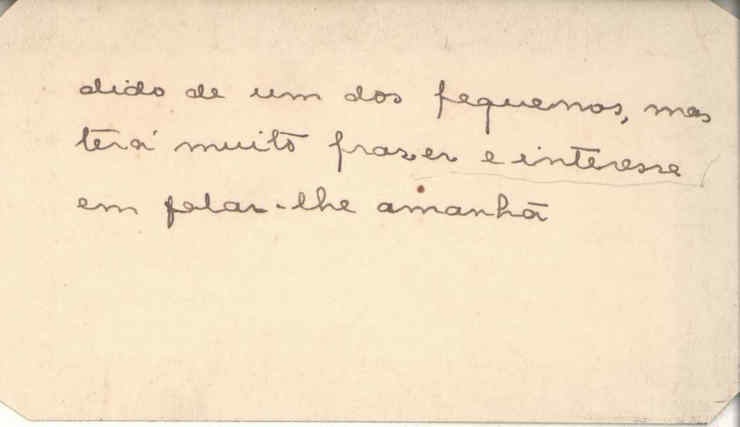 dido de um dos pequenos, mas
terá muito prazer e interesse
em falar-lhe amanhã